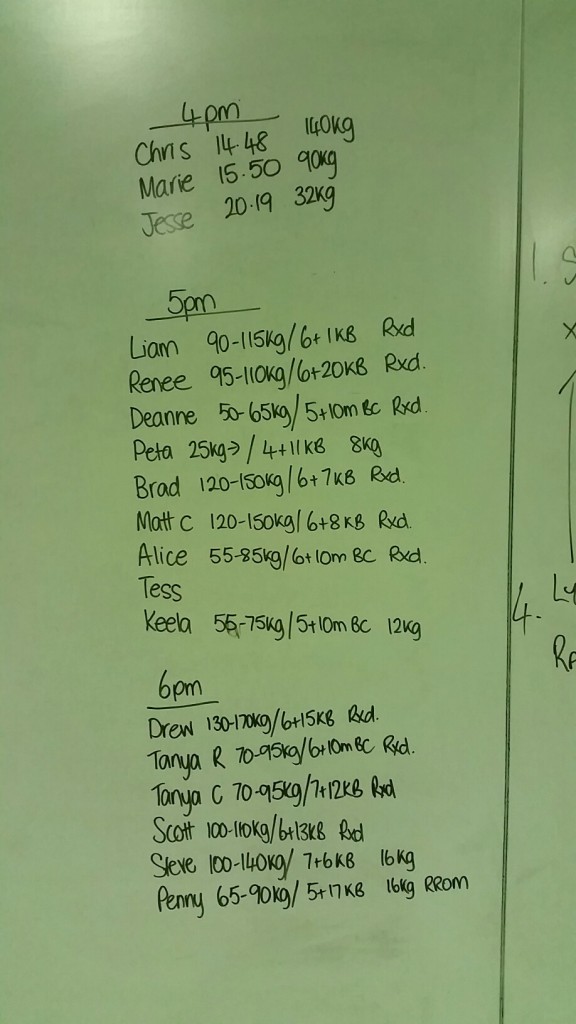 4pm
Chris 14.48 140kg
Marie 15.50 90kg
Jesse 20.19 32kg
5pm
Liam 90-115kg/6+1KB Rxd
Renee 95-110kg/6+20KB Rxd.
Deanne 50-65kg/5+10m BC Rxd.
Peta 25kg→/4+11KB 8kg
Brad 120-150kg/6+7KB Rxd.
Matt C 120-150kg/6+8KB Rxd.
Alice 55-85kg/6+10m BC Rxd.
Tess
Keela 55-75kg/5+10m BC 12kg
6pm
Drew 130-170kg/6+15KB Rxd.
Tanya R 70-95kg/6+10m BC Rxd.
Tanya C 70-95kg/7+12KB Rxd
Scott 100-110kg/6+13KB Rxd
Steve 100-140kg/ 7+6KB 16kg
Penny 65-90kg/ 5+17KB 16kg RROM
1. S
x
4. Ly